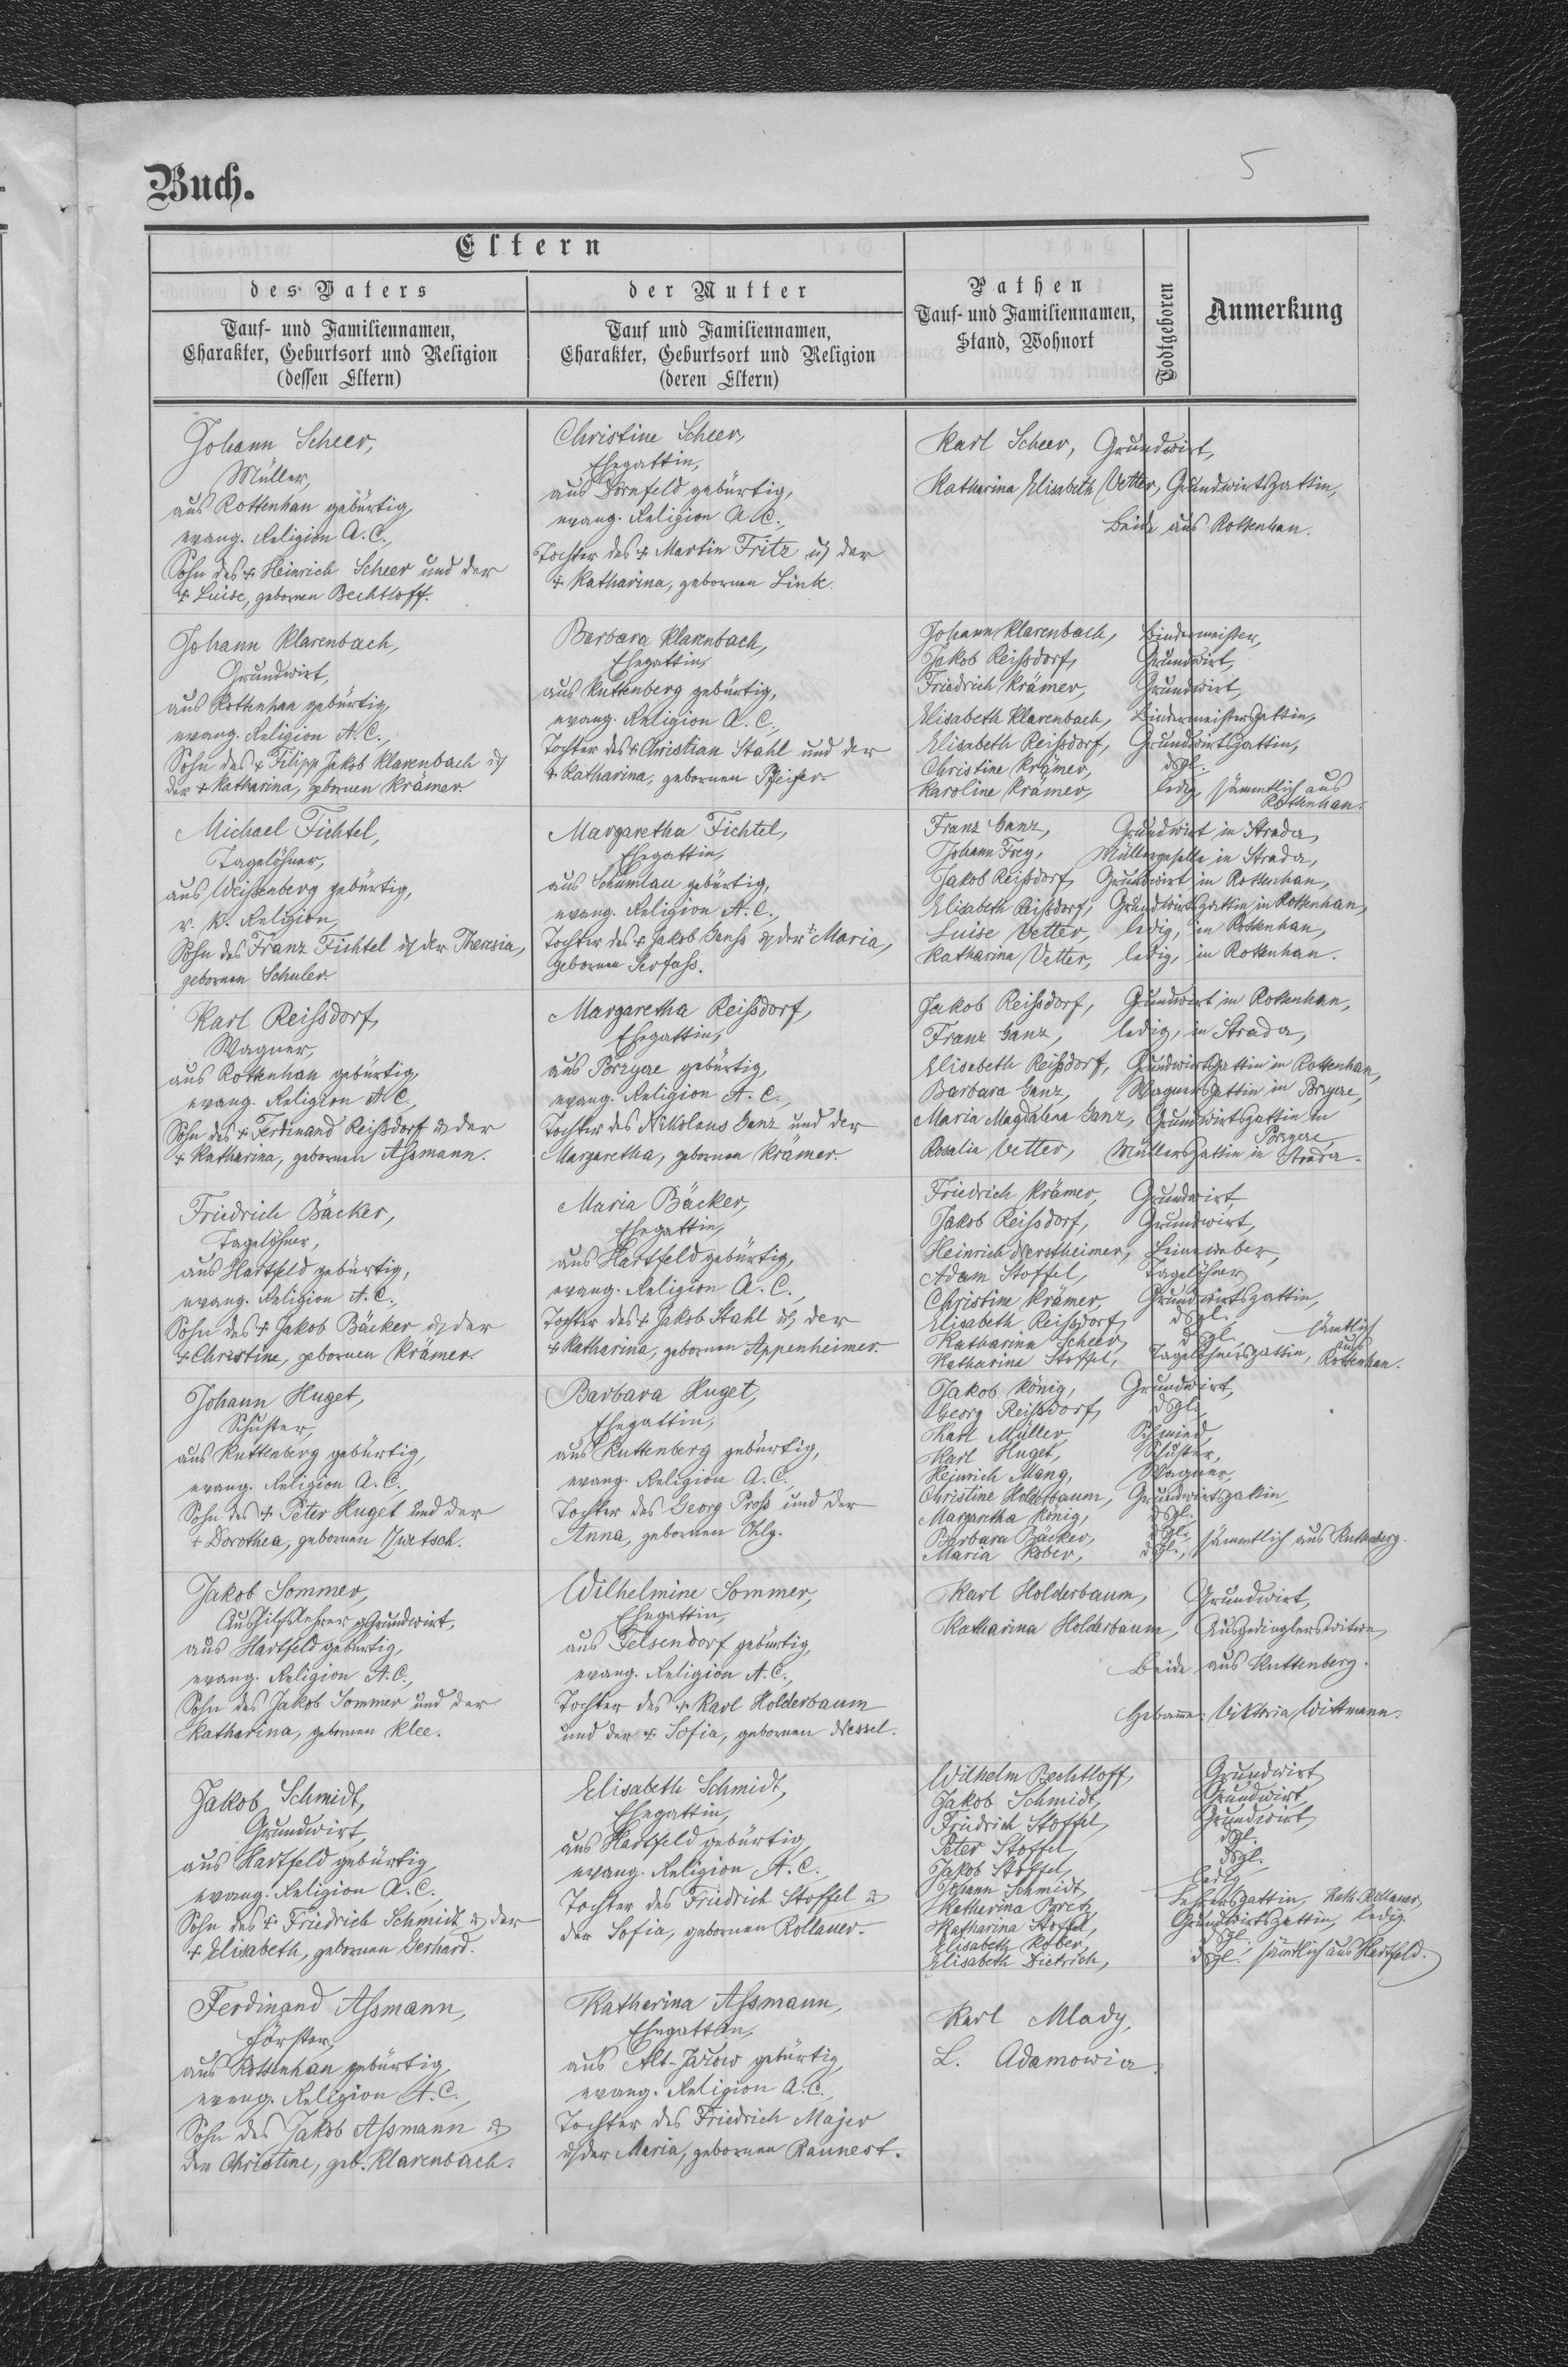 5
Buch.
Eltern
des Vaters
der Mutter
Pathen
Tauf- und Familiennamen,
Stand, Wohnort
Todtgeboren
Anmerkung
Tauf- und Familiennamen,
Charakter, Geburtsort und Religion
(dessen Eltern)
Tauf und Familiennamen,
Charakter, Geburtsort und Religion
(deren Eltern)
Johann Scheer,
Müller,
aus Rottenhan gebürtig,
evang. Religion A.C.,
Sohn des + Heinrich Scheer und der
+ Luise, gebornen Bechtloff.
Christine Scheer,
Ehegattin,
aus Dornfeld gebürtig,
evang. Religion A.C.,
Tochter des + Martin Fritz u der
+ Katharina, gebornen Link.
Karl Scheer, Grundwirt,
Katharina Elisabeth Vetter, Grundwirtsgattin,
beide aus Rottenhan.
Johann Klarenbach,
Grundwirt,
aus Rottenhan gebürtig,
evang. Religion A.C.,
Sohn des + Filipp Jakob Klarenbach u
der + Katharina, gebornen Krämer
Barbara Klarenbach,
Ehegattin,
aus Kuttenberg gebürtig,
evang. Religion A.C.,
Tochter des + Christian Stahl und der
+ Katharina, gebornen Pfeifer.
Johann Klarenbach, Bindermeister,
Jakob Reißdorf, Grundwirt,
Friedrich Krämer, Grundwirt,
Elisabeth Klarenbach, Bindermeistersgattin,
Elisabeth Reißdorf, Grundwirtsgattin,
Christine Krämer, dsgl.
Karoline Krämer, ledig, sämmtlich aus
Rottenhan.
Michael Fichtel,
Tagelöhner,
aus Weißenberg gebürtig,
r. k. Religion,
Sohn des Franz Fichtel u der Theresia,
gebornen Schuler.
Margaretha Fichtel,
Ehegattin,
aus Schumlau gebürtig,
evang. Religion A.C.,
Tochter des + Jakob Ganß u der + Maria,
gebornen Serfaß.
Franz Ganz, Grundwirt in Strada,
Johann Frey, Müllergeselle in Strada,
Jakob Reißdorf, Grundwirt in Rottenhan,
Elisabeth Reißdorf, Grundwirtsgattin in Rottenhan,
Luise Vetter, ledig, in Rottenhan,
Katharina Vetter, ledig, in Rottenhan.
Karl Reißdorf,
Wagner,
aus Rottenhan gebürtig,
evang. Religion A.C.,
Sohn des + Ferdinand Reißdorf u der
+ Katharina, gebornen Aßmann.
Margaretha Reißdorf,
Ehegattin,
aus Porzyce gebürtig,
evang. Religion A.C.,
Tochter des Nikolaus Ganz und der
Margaretha, gebornen Krämer.
Jakob Reißdorf, Grundwirt in Rottenhan,
Franz Ganz, ledig, in Strada,
Elisabeth Reißdorf, Grundwirtsgattin in Rottenhan,
Barbara Ganz, Wagnersgattin in
Maria Magdalena Ganz, Grundwirtsgattin in
Rosalia Vetter, Müllersgattin in Strada.
Friedrich Bäcker,
Tagelöhner,
aus Hartfeld gebürtig,
evang. Religion A.C.,
Sohn des + Jakob Bäcker u der
+ Christine, gebornen Krämer.
Maria Bäcker,
Ehegattin,
aus Hartfeld gebürtig,
evang. Religion A.C.,
Tochter des + Jakob Stahl u der
+ Katharina, gebornen Appenheimer.
Friedrich Krämer, Grundwirt
Jakob Reißdorf, Grundwirt,
Heinrich Nerstheimer, Leineweber,
Adam Stoffel, Tagelöhner
Christine Krämer, Grundwirtsgattin,
Elisabeth Reißdorf, dsgl.,
Katharina Scheer, dsgl. sämtlich
Katharina Stoffel, Tagelöhnersgattin, aus Rottenhan.
Johann Huget,
Schuster,
aus Kuttenberg gebürtig,
evang. Religion A.C.,
Sohn des + Peter Huget und der
+ Dorothea, gebornen Quetsch.
Barbara Huget,
Ehegattin,
aus Kuttenberg gebürtig,
evang. Religion A.C.,
Tochter des Georg Proß und der
Anna, gebornen Ohlg.
Jakob König, Grundwirt,
Georg Reißdorf, dsgl.,
Karl Müller, Schmied,
Karl Huget, Schuster,
Heinrich Mang, Wagner,
Christine Holderbaum, Grundwirtsgattin,
Margaretha König, dsgl.
Barbara Bäcker, dsgl.,
Maria Kober, dsgl., sämmtlich aus Kuttenberg.
Jakob Sommer,
Aushilfslehrer u Grundwirt,
aus Hartfeld gebürtig,
evang. Religion A.C.,
Sohn des Jakob Sommer und der
Katharina, gebornen Klee.
Wilhelmine Sommer,
Ehegattin,
aus Felsendorf gebürtig,
evang. Religion A.C.,
Tochter des + Karl Holderbaum
und der + Sofia, gebornen Nessel.
Karl Holderbaum, Grundwirt,
Katharina Holderbaum, Ausgedinglerswitwe,
beide aus Kuttenberg.
Hebamme: Viktoria Wittmann.
Jakob Schmidt,
Grundwirt,
aus Hartfeld gebürtig,
evang. Religion A.C.,
Sohn des + Friedrich Schmidt u der
+ Elisabeth, gebornen Gerhard.
Elisabeth Schmidt,
Ehegattin,
aus Hartfeld gebürtig,
evang. Religion A.C.,
Tochter des Friedrich Stoffel u
der Sofia, gebornen Rollauer.
Wilhelm Bechtloff, Grundwirt,
Jakob Schmidt, Grundwirt,
Friedrich Stoffel, Grundwirt,
Peter Stoffel, dsgl.
Jakob Stoffel, dsgl.
Johann Schmidt, ledig
Katharina Lehrersgattin, Kath. Rollauer,
Katharina Stoffel, Grundwirtsgattin, ledig.
Elisabeth Kober, dsgl.,
Elisabeth Dietrich, dsgl. sämtlich aus Hartfeld.
Ferdinand Aßmann,
Förster,
aus Rottenhan gebürtig,
evang. Religion A.C.,
Sohn des Jakob Aßmann u
der Christine, geb. Klarenbach.
Katharina Aßmann,
Ehegattin,
aus Alt-Jazow gebürtig,
evang. Religion A.C.,
Tochter des Friedrich Majer
u der Maria, gebornen Raunest.
Karl Mlady,
L. Adamowicz